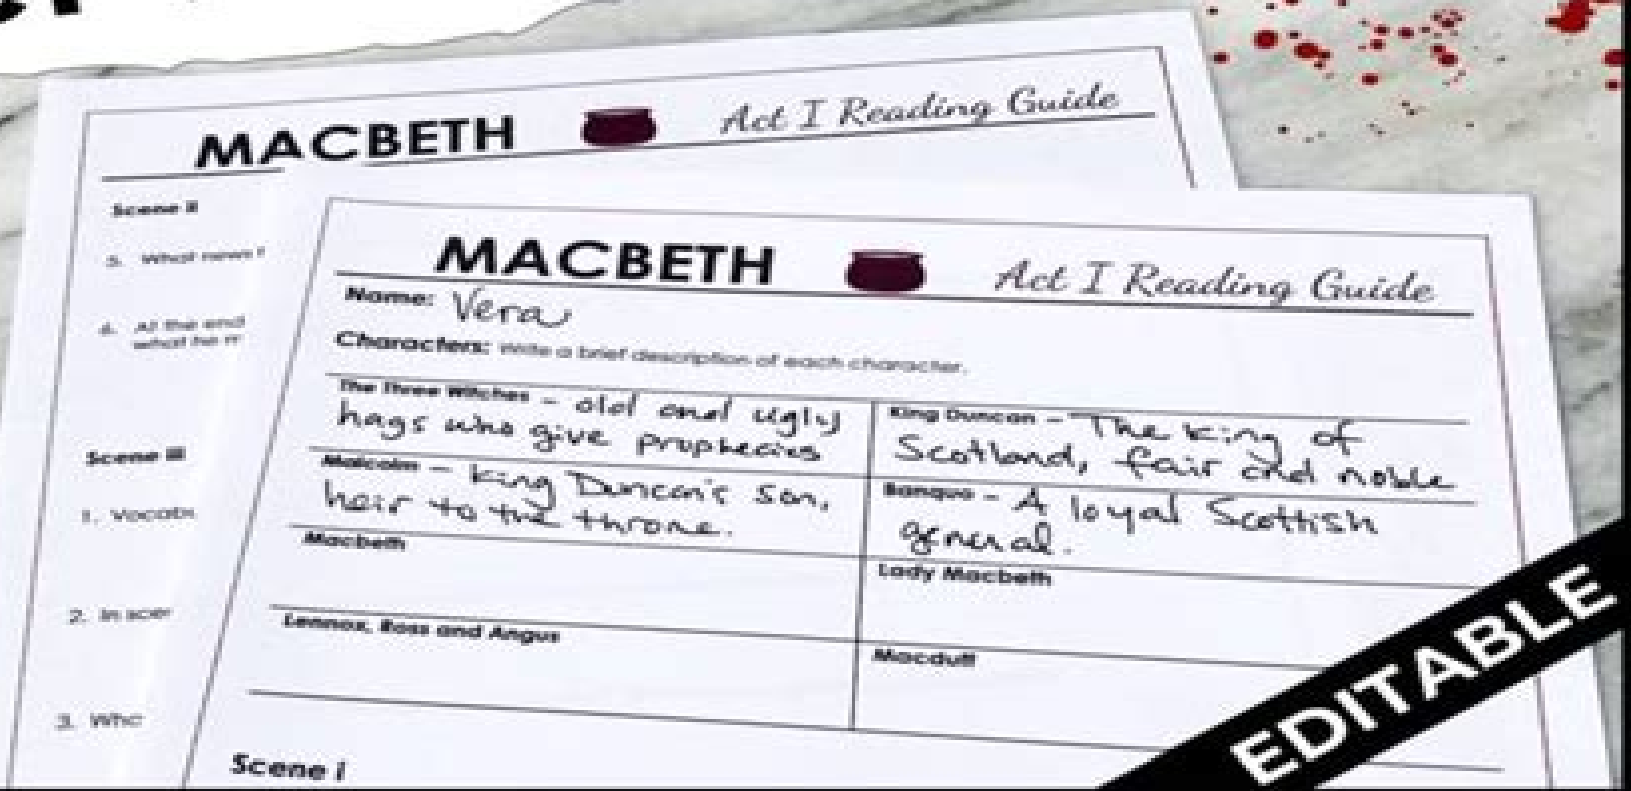 MACBETH Act I Reading Guide
Scene ii
5. What news
6. At the end
what he
Scene iii
1. Vocab
2. In
3.
MACBETH Act I Reading Guide
Name: Vera
Characters: Write a brief description of each character.
The Three Witches - old and ugly
hags who give prophecies
King Duncan - The king of
Scotland, fair and noble
Malcolm - King Duncan's son,
heir to the throne.
Banquo - A loyal Scottish
general.
Macbeth
Lady Macbeth
Lennox, Ross and Angus
Macduff
Scene i
EDITABLE